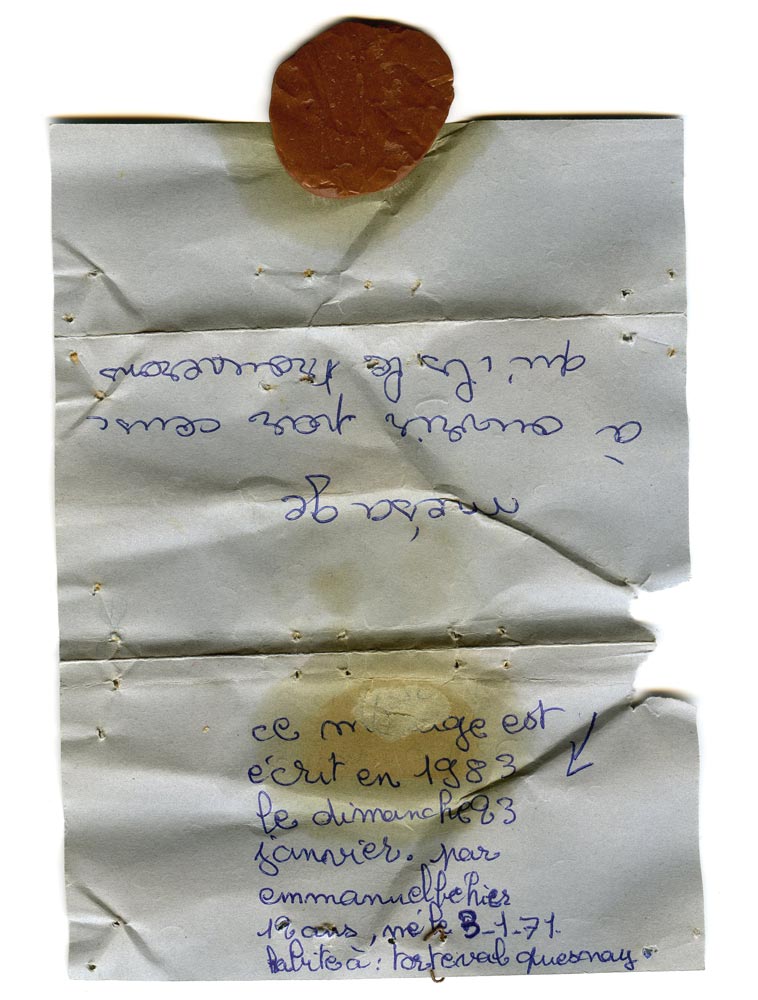 mésage
à ouvrir par ceuse
qu'ils le trouverons
ce est
écrit en 1983
le dimanche 23
janvier. par
emmanuel
12 ans, né le 3-1-71.
habite à : torteval quesnay.